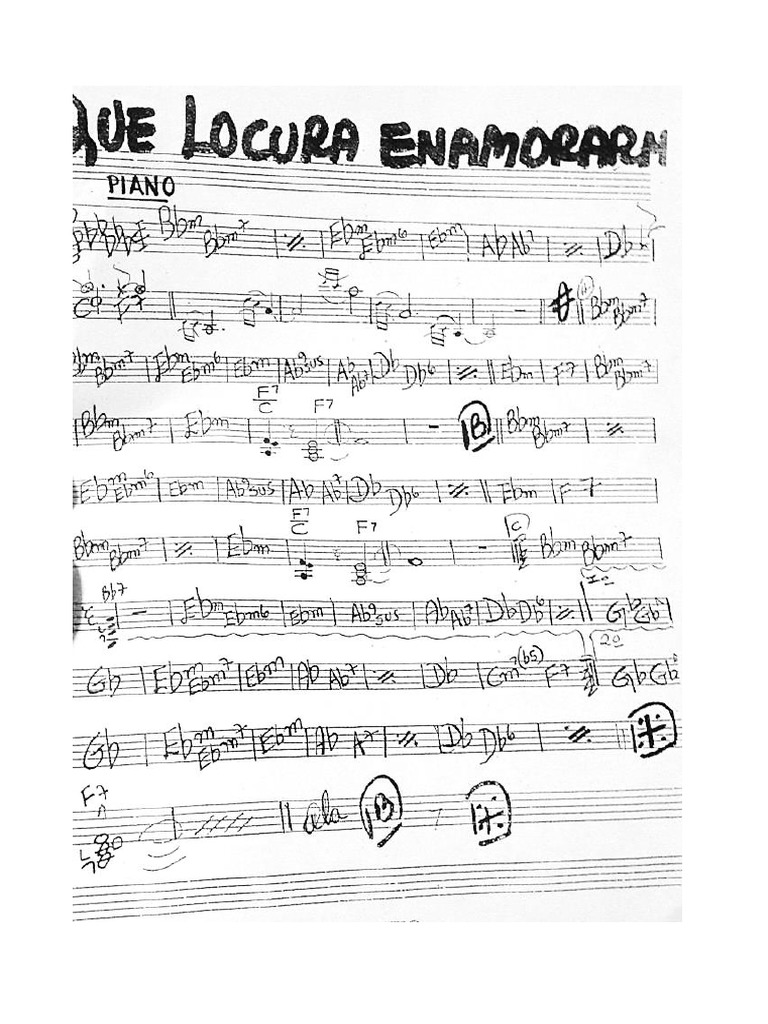 QUE LOCURA ENAMORARM
PIANO
Bbm Bbm7 | Ebm Ebm6 | Ebm | Ab Ab7 | Db
F7 Bbm Bbm7
Bbm Bbm7 | Ebm Ebm6 | Ebm | Ab9sus | Ab Ab7 | Db Db6 | Ebm | F7 | Bbm Bbm7
F7/C F7
Bbm Bbm7 | Ebm B Bbm Bbm7
Ebm Ebm6 | Ebm | Ab9sus | Ab Ab7 | Db Db6 | Ebm | F7
F7/C F7 C
Bbm Bbm7 | Ebm Bbm Bbm7
Bb7 1a
Ebm Ebm6 | Ebm | Ab9sus | Ab Ab7 | Db Db6 | Gb Gb
2a
Gb | Ebm Ebm7 | Ebm | Ab Ab7 | Db | Cm7(b5) F7 Gb Gb
Gb | Ebm Ebm7 | Ebm | Ab A7 | Db Db6
F7
al a B